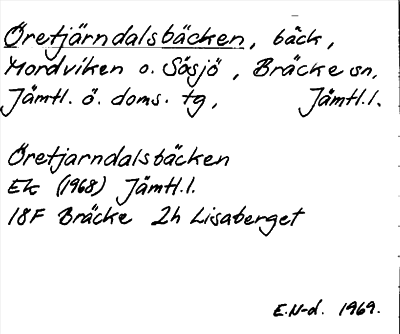 Öretjärndalsbäcken, bäck,
Mordviken o. Sösjö, Bräcke sn,
Jämtl. ö. doms. tg, Jämtl.l.
Öretjarndalsbäcken
Ek (1968) Jämtl.l.
18F Bräcke 2h Lisaberget
E.N-d. 1969.